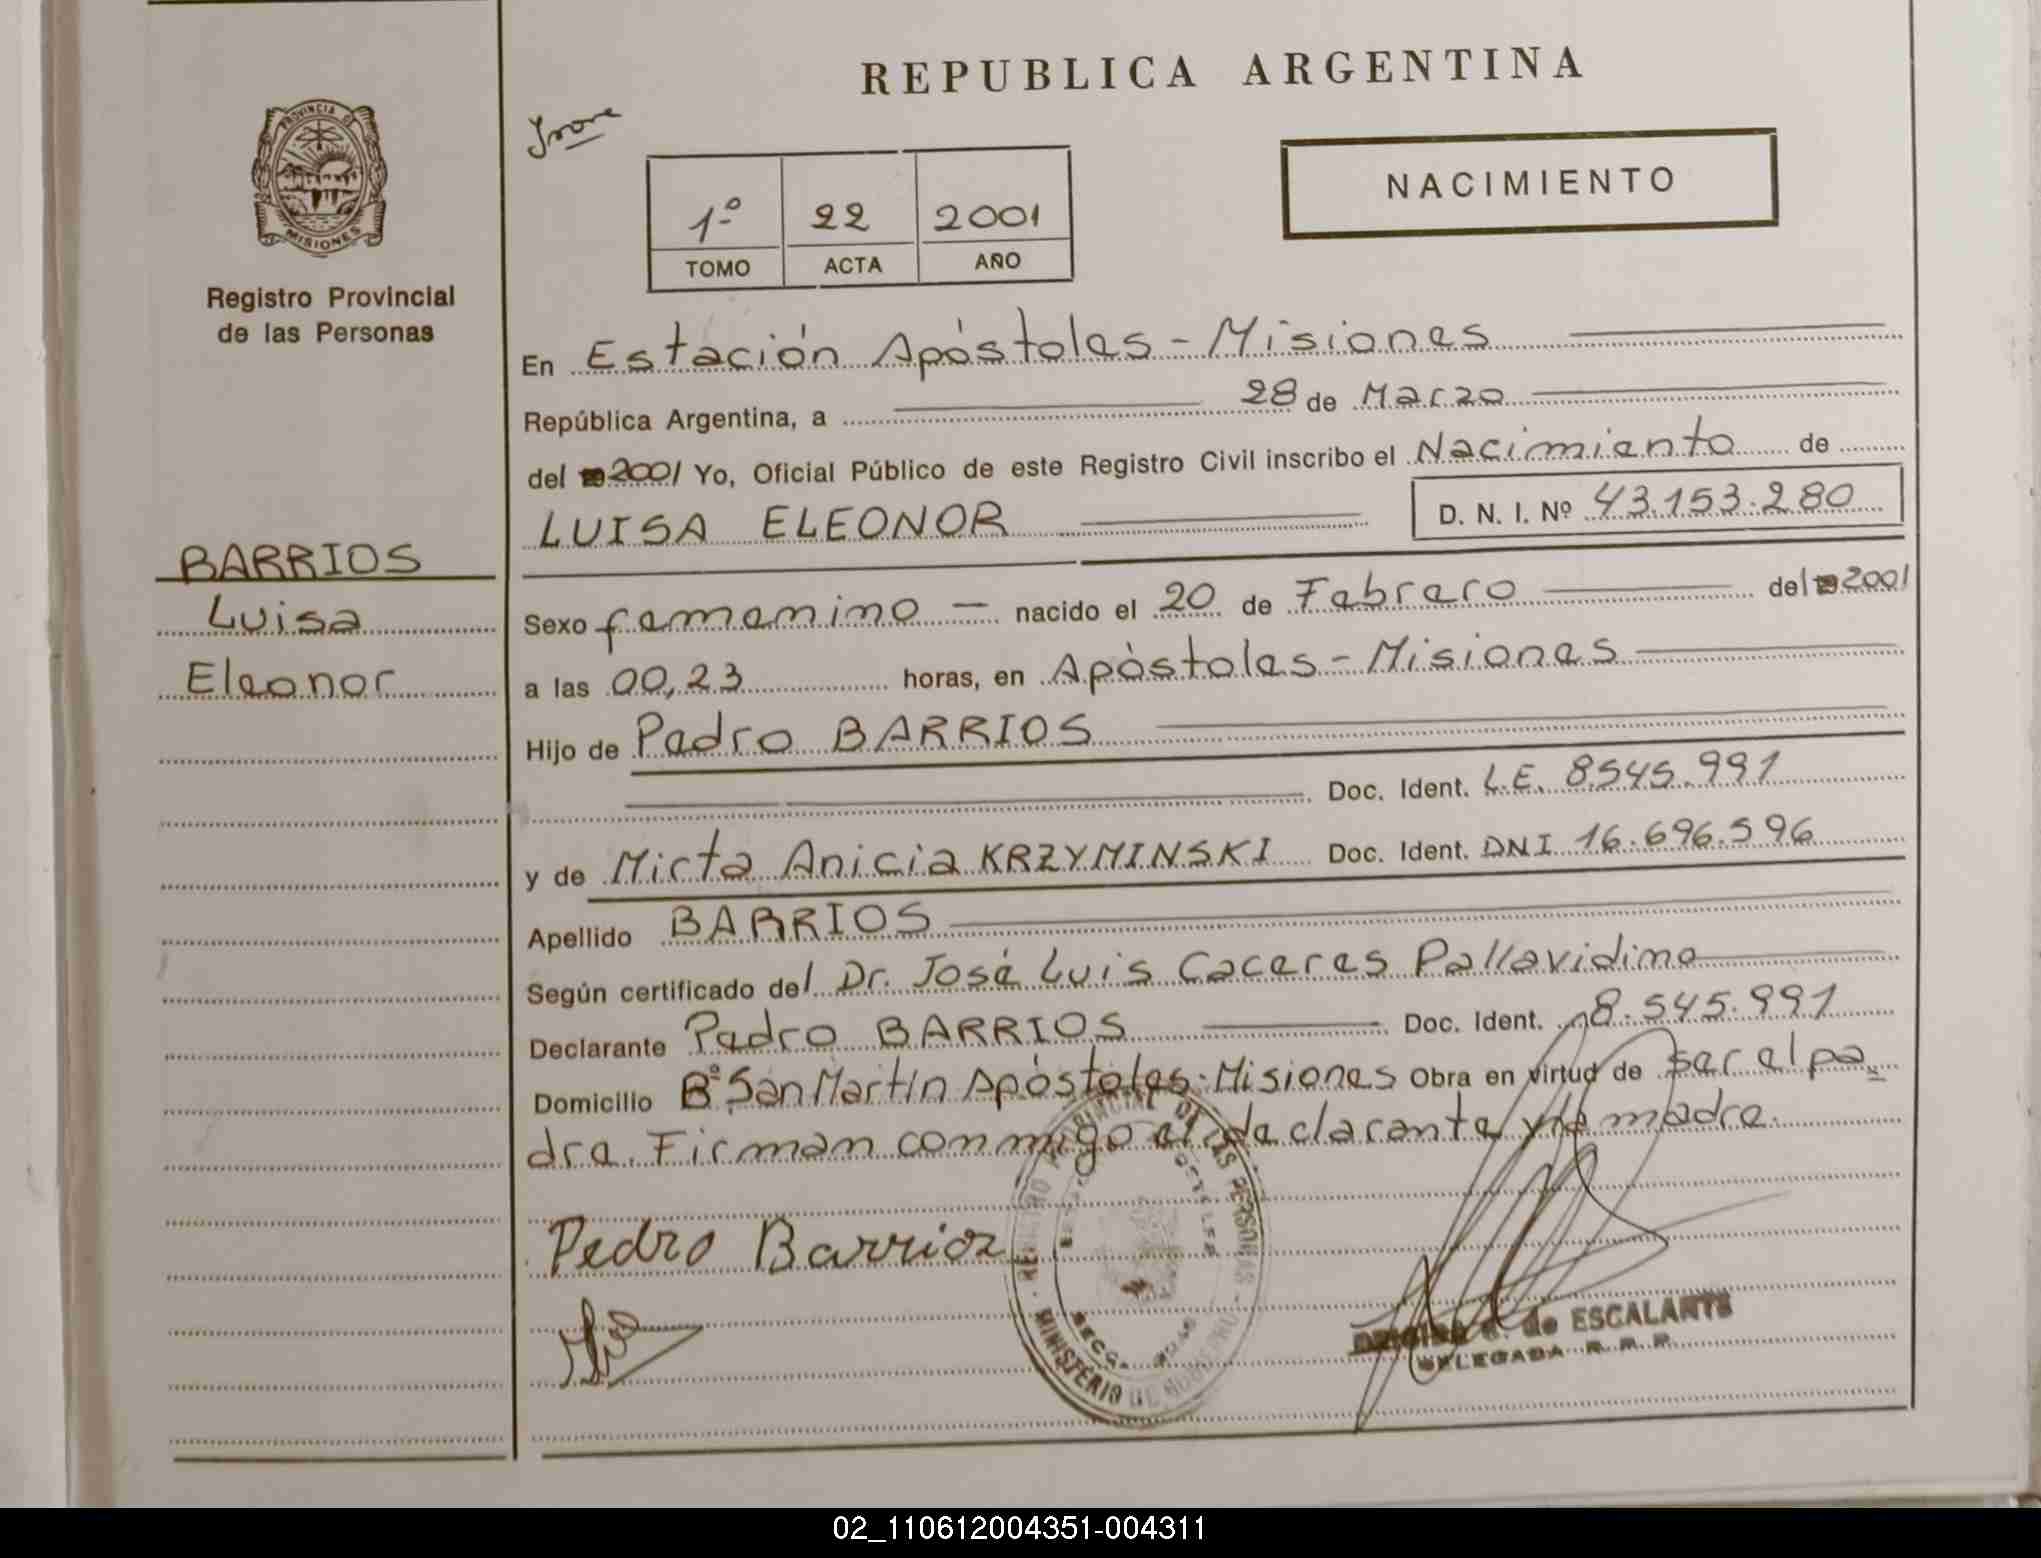 REPUBLICA ARGENTINA
PROVINCIA DE
MISIONES
Registro Provincial
de las Personas
NACIMIENTO
1º 22 2001
TOMO ACTA AÑO
En Estación Apóstoles - Misiones
República Argentina, a 28 de Marzo
del 2001 Yo, Oficial Público de este Registro Civil inscribo el Nacimiento de
LUISA ELEONOR D. N. I. Nº 43.153.280
BARRIOS
Luisa
Eleonor
Sexo femenino nacido el 20 de Febrero del 2001
a las 00,23 horas, en Apóstoles - Misiones
Hijo de Pedro BARRIOS
Doc. Ident. L.E. 8.545.991
y de Mirta Anicia KRZYMINSKI Doc. Ident. DNI 16.696.596
Apellido BARRIOS
Según certificado del Dr. José Luis Caceres Pallavidino
Declarante Pedro BARRIOS Doc. Ident. 8.545.991
Domicilio Bº San Martín Apóstoles - Misiones Obra en virtud de ser el pa
dre. Firman conmigo el declarante y la madre.
Pedro Barrios
REGISTRO PROVINCIAL DE LAS PERSONAS - MINISTERIO DE GOBIERNO
de ESCALANTE
DELEGADA R. P. P.
02_110612004351-004311